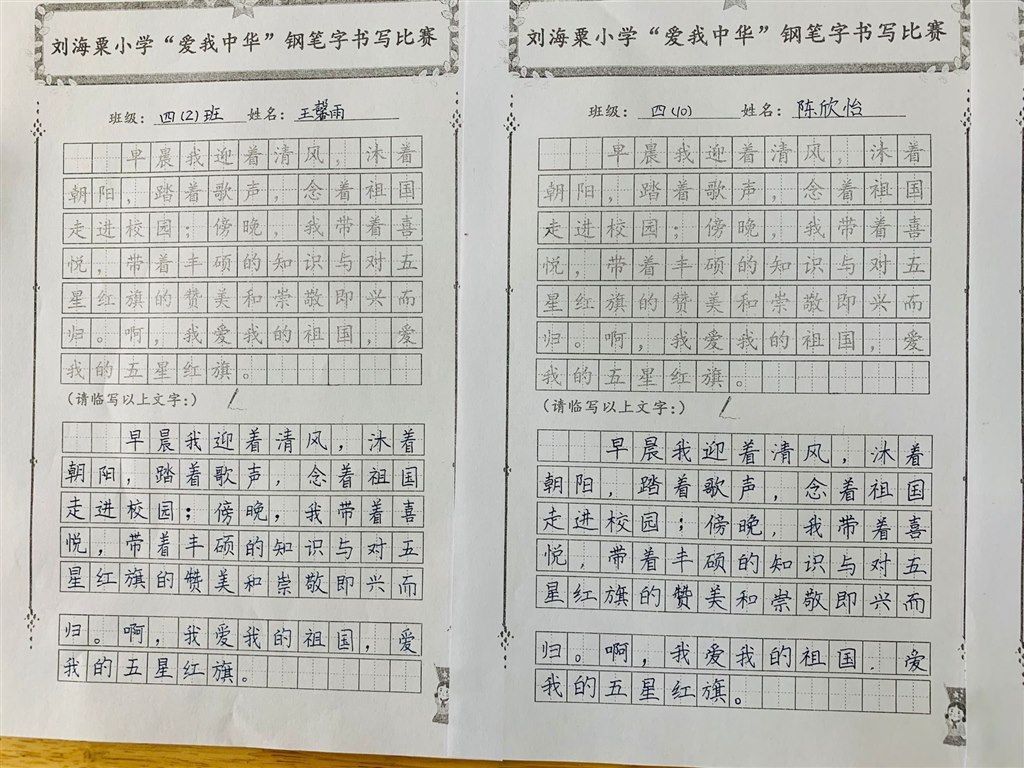 刘海粟小学“爱我中华”钢笔字书写比赛
班级：四(2)班 姓名：王馨雨
早晨我迎着清风，沐着
朝阳，踏着歌声，念着祖国
走进校园；傍晚，我带着喜
悦，带着丰硕的知识与对五
星红旗的赞美和崇敬即兴而
归。啊，我爱我的祖国，爱
我的五星红旗。
（请临写以上文字：）
早晨我迎着清风，沐着
朝阳，踏着歌声，念着祖国
走进校园；傍晚，我带着喜
悦，带着丰硕的知识与对五
星红旗的赞美和崇敬即兴而
归。啊，我爱我的祖国，爱
我的五星红旗。
刘海粟小学“爱我中华”钢笔字书写比赛
班级：四(10) 姓名：陈欣怡
早晨我迎着清风，沐着
朝阳，踏着歌声，念着祖国
走进校园；傍晚，我带着喜
悦，带着丰硕的知识与对五
星红旗的赞美和崇敬即兴而
归。啊，我爱我的祖国，爱
我的五星红旗。
（请临写以上文字：）
早晨我迎着清风，沐着
朝阳，踏着歌声，念着祖国
走进校园；傍晚，我带着喜
悦，带着丰硕的知识与对五
星红旗的赞美和崇敬即兴而
归。啊，我爱我的祖国．爱
我的五星红旗。